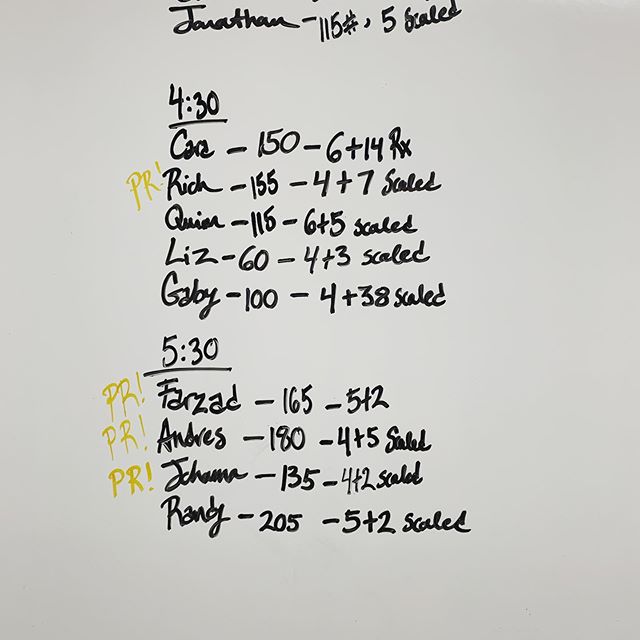 Jonathan - 115#, 5 Scaled
4:30
Cara - 150 - 6+14 Rx
PR! Rich - 155 - 4+7 Scaled
Quinn - 115 - 6+5 scaled
Liz - 60 - 4+3 scaled
Gaby - 100 - 4+38 scaled
5:30
PR! Farzad - 165 - 5+2
PR! Andres - 180 - 4+5 Scaled
PR! Johanna - 135 - 4+2 scaled
Randy - 205 - 5+2 scaled